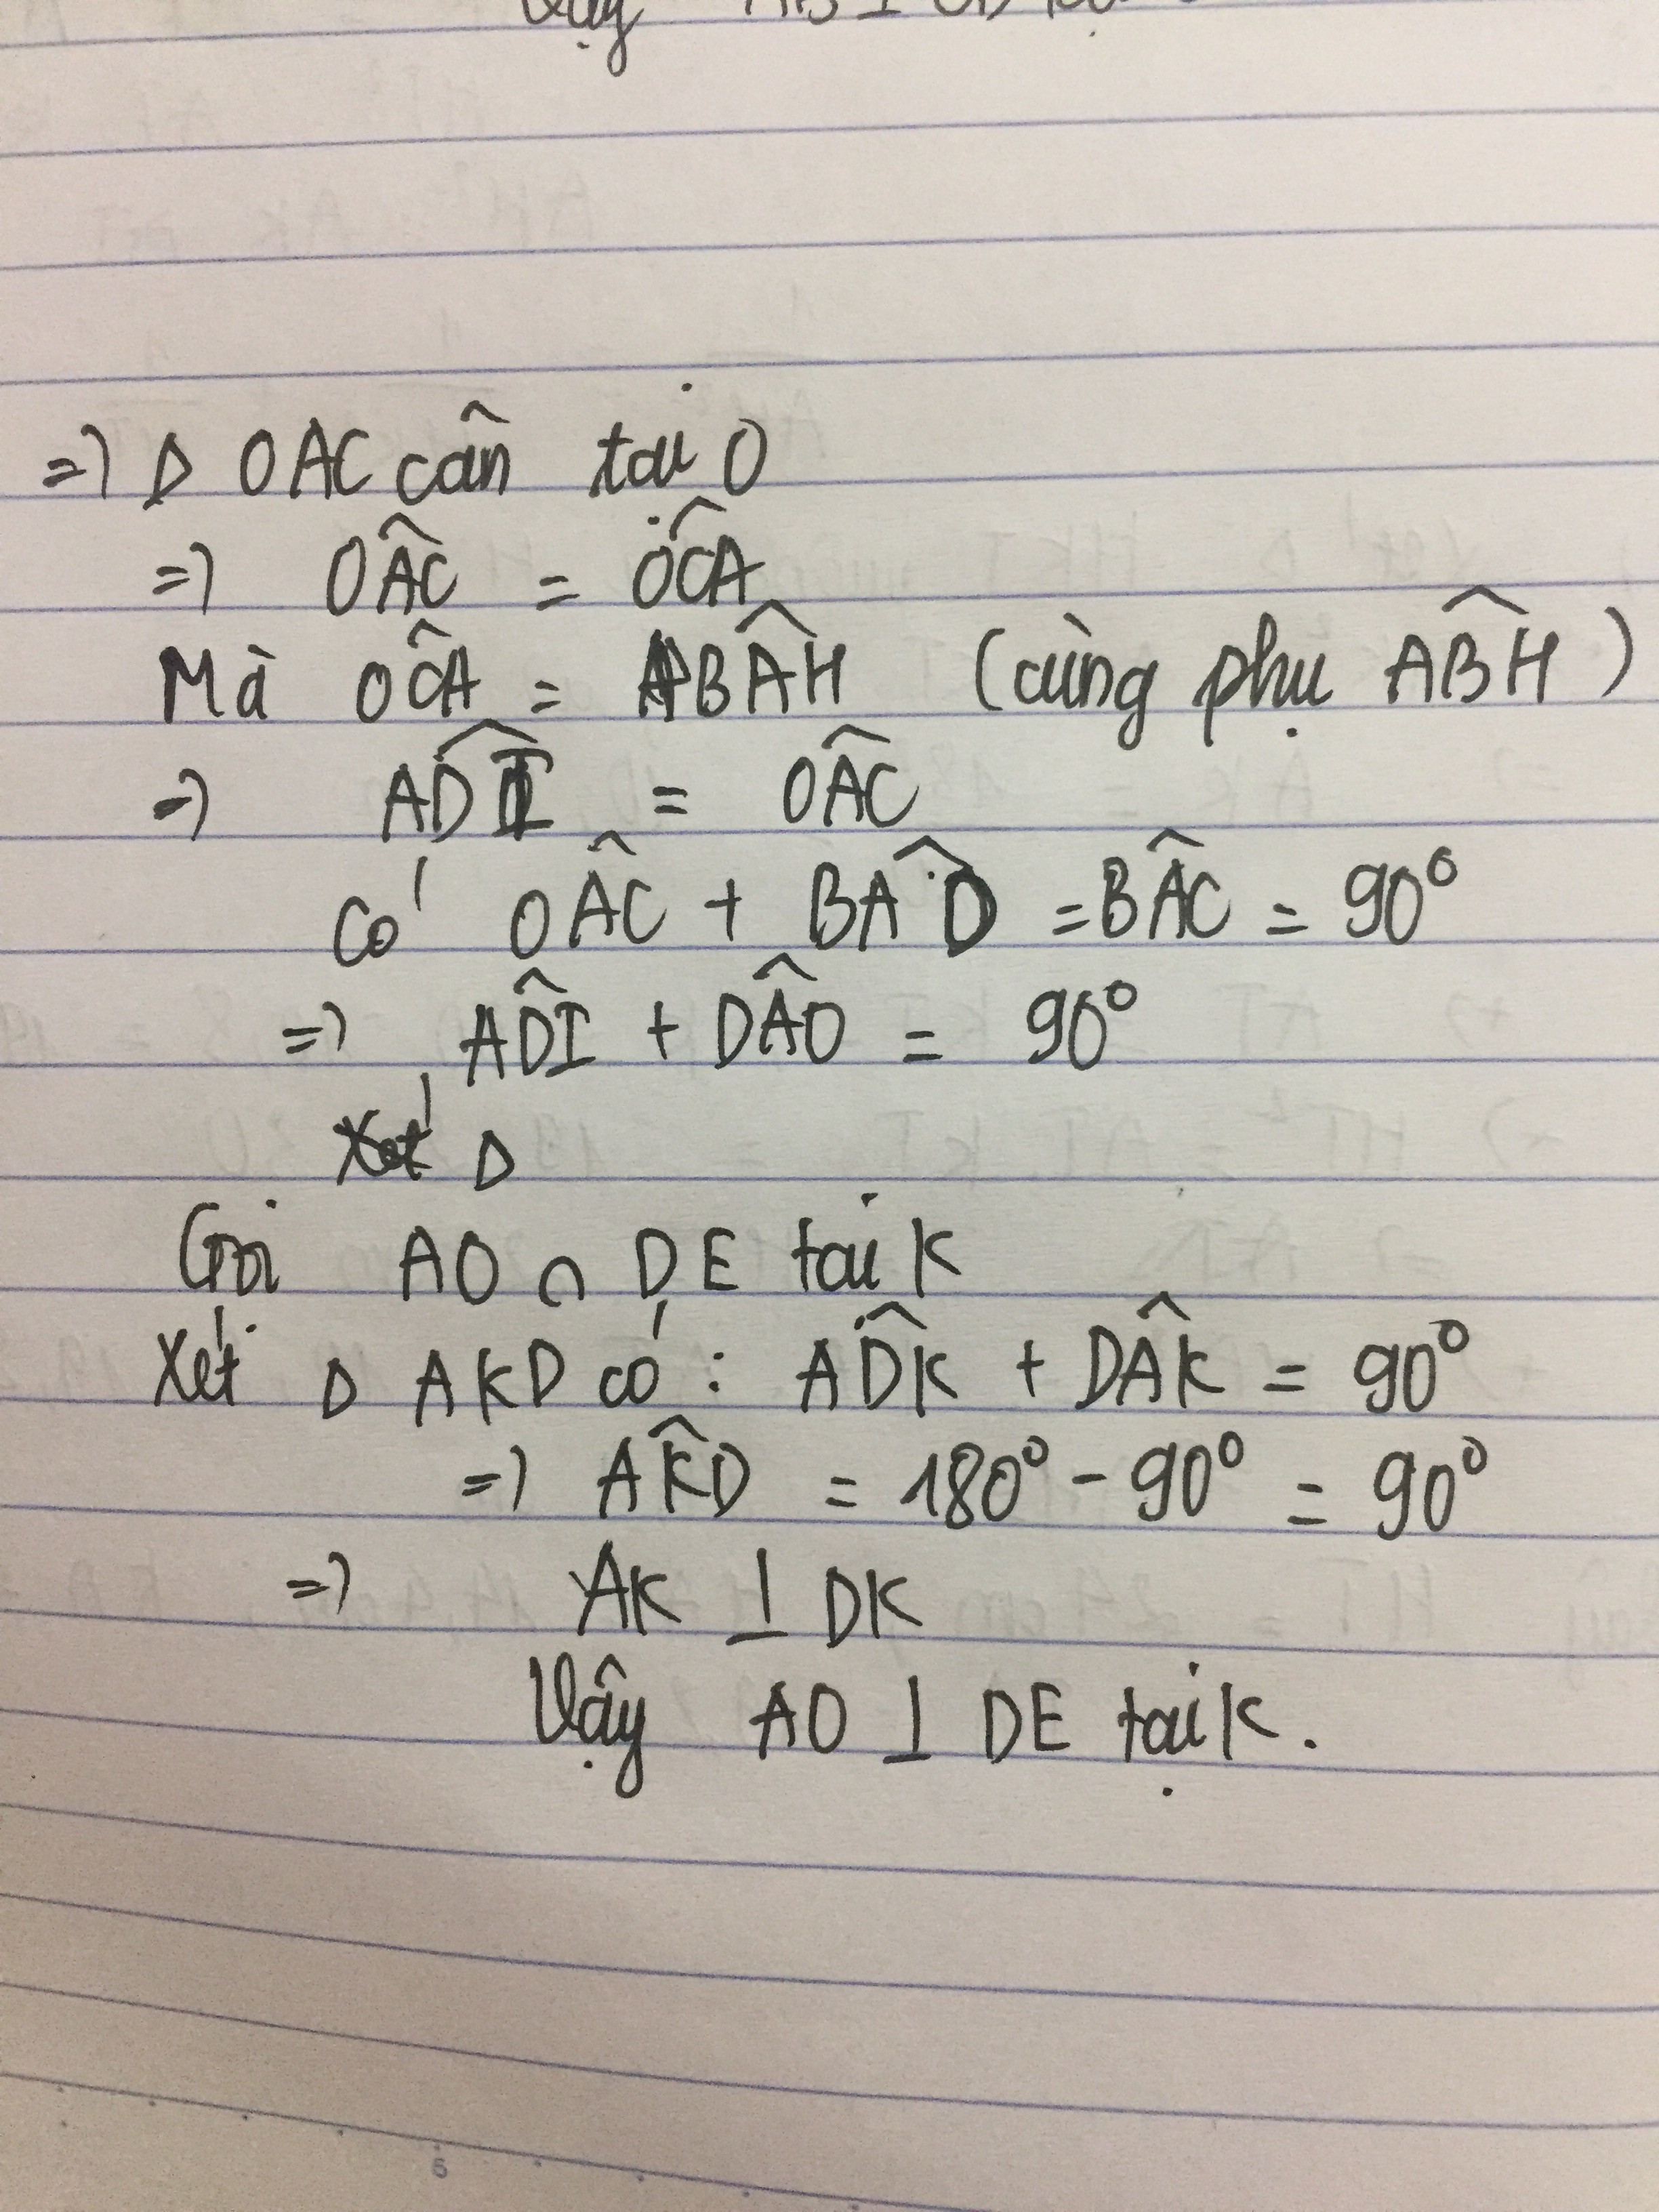 Vậy
=> Δ OAC cân tại O
=> OÂC = OĈA
Mà OĈA = BÂH (cùng phụ AB̂H)
=> AD̂I = OÂC
Có OÂC + BÂO = BÂC = 90°
=> AD̂I + DÂO = 90°
Xét Δ
Gọi AO ∩ DE tại K
Xét Δ AKD có: AD̂K + DÂK = 90°
=> AK̂D = 180° - 90° = 90°
=> AK ⊥ DK
Vậy AO ⊥ DE tại K.
6